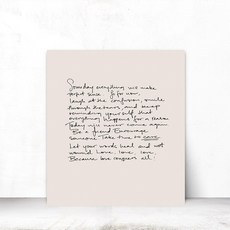 Someday everything will make
perfect sense. So for now,
laugh at the confusion, smile
through the tears, and keep
reminding yourself that
everything happens for a reason.
Today will never come again.
Be a friend. Encourage
someone. Take time to care.
Let your words heal and not
wound. Love, love, love.
Because love conquers all.